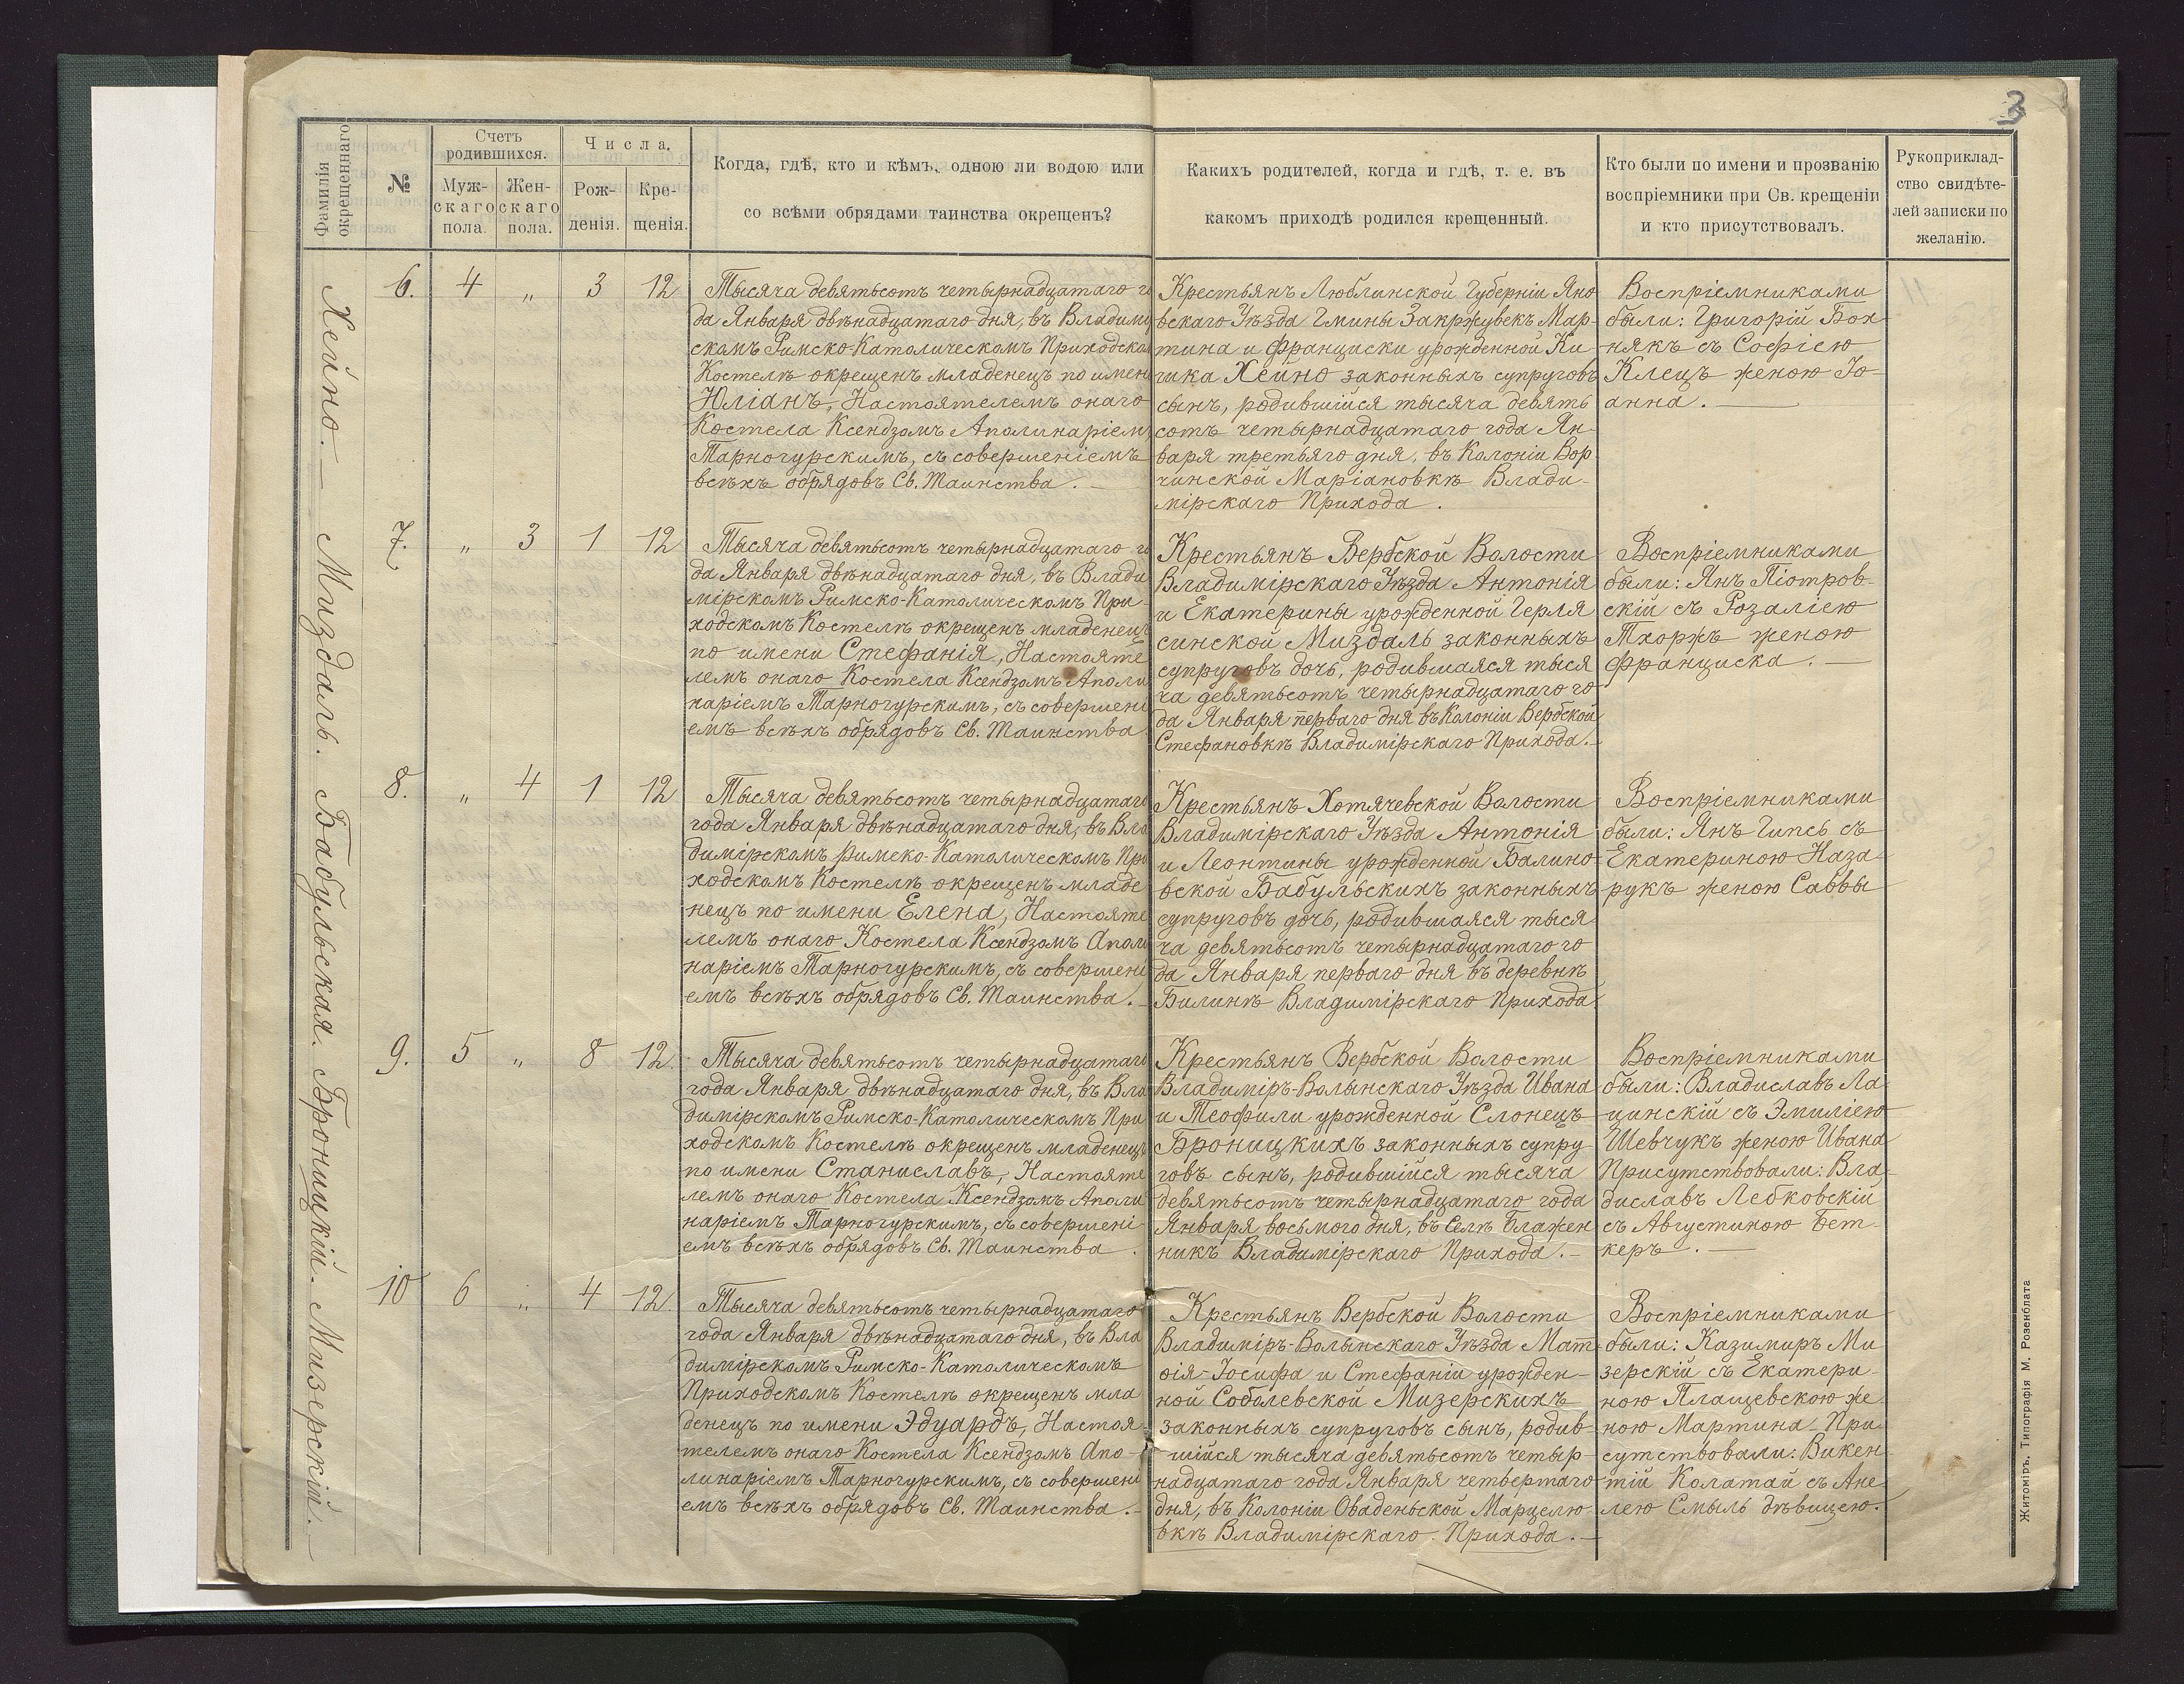 3
Фамилія окрещеннаго
№
Счетъ родившихся.
Мужскаго пола.
Женскаго пола.
Числа.
Рожденія.
Крещенія.
Когда, гдѣ, кто и кѣмъ, одною ли водою или
со всѣми обрядами таинства окрещенъ?
Какихъ родителей, когда и гдѣ, т. е. въ
какомъ приходѣ родился крещенный.
Кто были по имени и прозванію
воспріемники при Св. крещеніи
и кто присутствовалъ.
Рукоприклад-
ство свидѣте-
лей записки по
желанію.
Хейно. — Миздаль. Бабульская. Броницкій. Мизерскій. —
6. 4 „ 3 12
Тысяча девятьсотъ четырнадцатаго го
да Января двѣнадцатаго дня, въ Владимі
скомъ Римско-Католическомъ Приходском
Костелѣ окрещенъ младенецъ по имени
Юліанъ, Настоятелемъ онаго
Костела Ксендзомъ Аполинаріемъ
Тарногурскимъ, съ совершеніемъ
всѣхъ обрядовъ Св. Таинства. —
Крестьянъ Люблинской Губерніи Яно
вскаго Уѣзда Гмины Закржувекъ Мар-
тина и Франциски урожденной Ки-
чика Хейно законныхъ супруговъ
сынъ, родившійся тысяча девять
сотъ четырнадцатаго года Ян-
варя третьяго дня, въ Колоніи Вор
чинской Маріановкѣ Влади-
мірскаго Прихода.
Воспріемниками
были: Григорій Бох-
някъ съ Софіею
Клецъ женою Іо-
анна. —
7. „ 3 1 12
Тысяча девятьсотъ четырнадцатаго го
да Января двѣнадцатаго дня, въ Влади
мірскомъ Римско-Католическомъ При-
ходскомъ Костелѣ окрещенъ младенецъ
по имени Стефанія, Настояте
лемъ онаго Костела Ксендзомъ Аполи
наріемъ Тарногурскимъ, съ совершені
емъ всѣхъ обрядовъ Св. Таинства.
Крестьянъ Вербской Волости
Владимірскаго Уѣзда Антонія
и Екатерины урожденной Герля
синской Миздаль законныхъ
супруговъ дочь, родившаяся тыся
ча девятьсотъ четырнадцатаго го
да Января перваго дня въ Колоніи Вербской
Стефановкѣ Владимірскаго Прихода. —
Воспріемниками
были: Янъ Піотров-
скій съ Розаліею
Тхоржъ женою
Франциска. —
8. „ 4 1 12
Тысяча девятьсотъ четырнадцатаго
года Января двѣнадцатаго дня, въ Вла
димірскомъ Римско-Католическомъ При
ходскомъ Костелѣ окрещенъ младе
нецъ по имени Елена, Настояте
лемъ онаго Костела Ксендзомъ Аполи
наріемъ Тарногурскимъ, съ совершені
емъ всѣхъ обрядовъ Св. Таинства. —
Крестьянъ Хотячевской Волости
Владимірскаго Уѣзда Антонія
и Леонтины урожденной Балино-
вской Бабульскихъ законныхъ
супруговъ дочь, родившаяся тыся
ча девятьсотъ четырнадцатаго го
да Января перваго дня въ деревнѣ
Билинѣ Владимірскаго Прихода
Воспріемниками
были: Янъ Гипсь съ
Екатериною Наза-
рукъ женою Саввы
9. 5 „ 8 12.
Тысяча девятьсотъ четырнадцатаго
года Января двѣнадцатаго дня, въ Вла
димірскомъ Римско-Католическомъ При
ходскомъ Костелѣ окрещенъ младенецъ
по имени Станиславъ, Настояте
лемъ онаго Костела Ксендзомъ Аполи
наріемъ Тарногурскимъ, съ совершені
емъ всѣхъ обрядовъ Св. Таинства.
Крестьянъ Вербской Волости
Владиміръ-Волынскаго Уѣзда Ивана
и Теофили урожденной Слонецъ
Броницкихъ законныхъ супру-
говъ сынъ, родившійся тысяча
девятьсотъ четырнадцатаго года
Января восьмого дня, въ Селѣ Блажен
никѣ Владимірскаго Прихода. —
Воспріемниками
были: Владиславъ Ла-
цинскій съ Эмиліею
Шевчукъ женою Ивана
Присутствовали: Вла-
диславъ Лебковскій
съ Августиною Бет-
керъ. —
10 6 „ 4 12.
Тысяча девятьсотъ четырнадцатаго
года Января двѣнадцатаго дня, въ Вла
димірскомъ Римско-Католическомъ
Приходскомъ Костелѣ окрещенъ мла
денецъ по имени Эдуардъ, Настоя-
телемъ онаго Костела Ксендзомъ Апо-
линаріемъ Тарногурскимъ, съ совершені
емъ всѣхъ обрядовъ Св. Таинства. —
Крестьянъ Вербской Волости
Владиміръ-Волынскаго Уѣзда Мат-
ѳія-Іосифа и Стефаніи урожден-
ной Соболевской Мизерскихъ
законныхъ супруговъ сынъ, родив-
шійся тысяча девятьсотъ четыр-
надцатаго года Января четвертаго
дня, въ Колоніи Оваденьской Марцелю-
вкѣ Владимірскаго Прихода. —
Воспріемниками
были: Казимиръ Ми
зерскій съ Екатери-
ною Плащевскою же-
ною Мартина. При-
сутствовали: Викен-
тій Колатай съ Ане-
лею Смыль дѣвицею.
Житоміръ. Типографія М. Розенблата